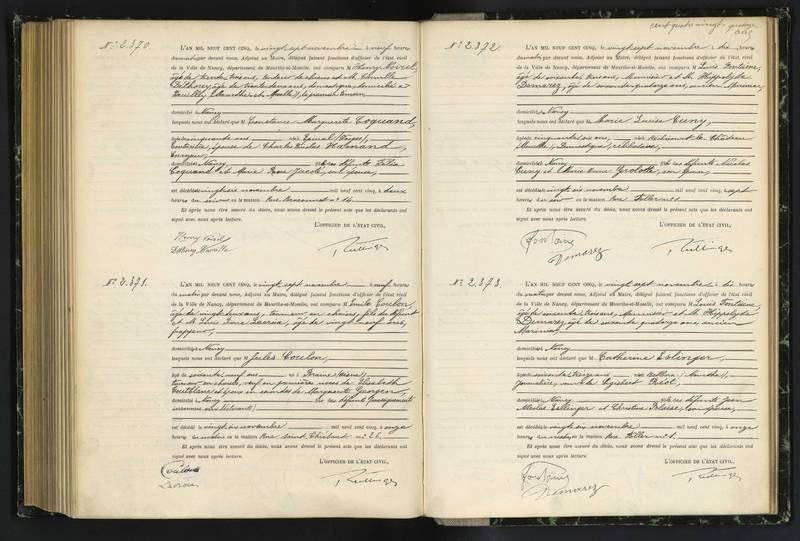 N° 2.370.
L'AN MIL NEUF CENT CINQ, le vingt sept novembre à neuf heures
du matin par devant nous, Adjoint au Maire, délégué faisant fonctions d'officier de l'état civil
de la Ville de Nancy, département de Meurthe-et-Moselle, ont comparu M. Henry
âgé de trente trois ans, et M. Camille
Déthorey, âgé de trente deux ans, domestique, domicilié à
domiciliés Nancy
lesquels nous ont déclaré que M. Constance Marguerite Coquand,
âgée de cinquante ans née à Epinal (Vosges),
couturière, épouse de Charles Nicolas
domiciliée à Nancy, fille des défunts Félix
Coquand et Marie Rose Jacob, son épouse,
est décédée le vingt six novembre mil neuf cent cinq, à deux
heures du soir en la maison Rue Braconnot n° 14
Et après nous être assuré du décès, nous avons dressé le présent acte que les déclarants ont
signé avec nous après lecture.
L'OFFICIER DE L'ÉTAT CIVIL,
N° 2.371.
L'AN MIL NEUF CENT CINQ, le vingt sept novembre à neuf heures
du matin par devant nous, Adjoint au Maire, délégué faisant fonctions d'officier de l'état civil
de la Ville de Nancy, département de Meurthe-et-Moselle, ont comparu M. Emile Coulon,
âgé de vingt deux ans, tourneur en chaises, fils du défunt
et M. Louis âgé de vingt neuf ans,
frappeur,
domiciliés Nancy
lesquels nous ont déclaré que M. Jules Coulon,
âgé de soixante neuf ans né à
tourneur en chaises, veuf en premières noces de Elisabeth
et époux en secondes de Marguerite Georgen,
domicilié à Nancy, fils des défunts
est décédé le vingt six novembre mil neuf cent cinq, à onze
heures du matin en la maison Rue Saint Thiébaut n° 26
Et après nous être assuré du décès, nous avons dressé le présent acte que les déclarants ont
signé avec nous après lecture.
L'OFFICIER DE L'ÉTAT CIVIL,
Coulon
cent quatre vingt
N° 2.372.
L'AN MIL NEUF CENT CINQ, le vingt sept novembre à dix heures
du matin par devant nous, Adjoint au Maire, délégué faisant fonctions d'officier de l'état civil
de la Ville de Nancy, département de Meurthe-et-Moselle, ont comparu M. Louis Fontaine,
âgé de soixante trois ans, Menuisier et M. Hippolyte
Demarez, âgé de soixante quatorze ans, ancien Marinier,
domiciliés Nancy
lesquels nous ont déclaré que M. Marie Louise Cuny,
âgée de cinquante six ans, née à Réchicourt le Château
(Meurthe), Domestique, célibataire,
domiciliée à Nancy fille des défunts Nicolas
Cuny et Marie Anne Grolotte, son épouse,
est décédée le vingt six novembre mil neuf cent cinq, à sept
heures du soir en la maison Rue Feller n° 1
Et après nous être assuré du décès, nous avons dressé le présent acte que les déclarants ont
signé avec nous après lecture.
L'OFFICIER DE L'ÉTAT CIVIL,
Fontaine
Demarez
N° 2.373.
L'AN MIL NEUF CENT CINQ, le vingt sept novembre à dix heures
du matin par devant nous, Adjoint au Maire, délégué faisant fonctions d'officier de l'état civil
de la Ville de Nancy, département de Meurthe-et-Moselle, ont comparu M. Louis Fontaine,
âgé de soixante trois ans, Menuisier et M. Hippolyte
Demarez, âgé de soixante quatorze ans, ancien
Marinier,
domiciliés Nancy
lesquels nous ont déclaré que M. Catherine Eslinger,
âgée de soixante née à (Meurthe),
journalière,
domiciliée à Nancy fille des défunts Jean
Nicolas Eslinger et Christine son épouse,
est décédée le vingt six novembre mil neuf cent cinq, à onze
heures du matin en la maison Rue Feller n° 1.
Et après nous être assuré du décès, nous avons dressé le présent acte que les déclarants ont
signé avec nous après lecture.
L'OFFICIER DE L'ÉTAT CIVIL,
Fontaine
Demarez